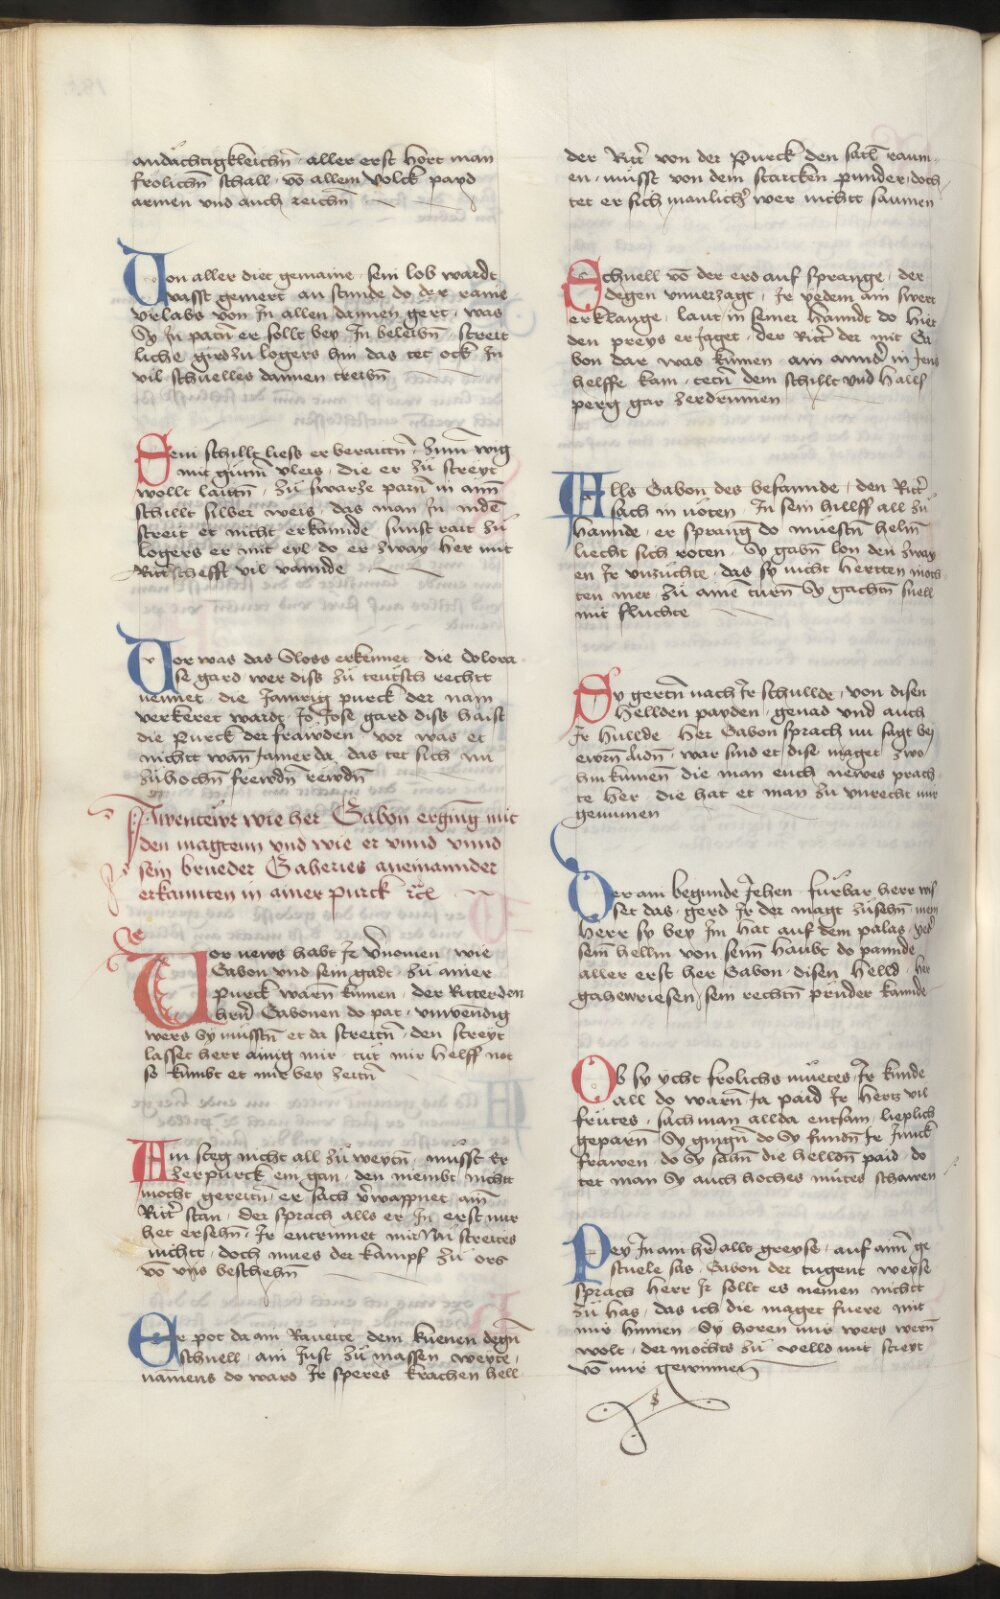 andächtigkleichn̄ · aller erst hort man
frölichn̄ schall · vō allem volck payd
armen vnd auch reichn̄
Von aller diet gemaine · sein lob wardt
vasst gemert an stunde do der raine
vrlabs von In allen dannen gert · was
Sy In patn̄ er sollt bey In beleibn̄ · streit
liche gird zu logers hin das tet ock In
vil schnelles dannen treibn̄
Sein schillt liess er beraittn̄ · Zum̄ wig
mit gutm̄ vleis · die er zu streyt
wollt laitn̄ · Zu swarze parn̄ in ainn̄
schillt silber weis · das man In in dē
streit et nicht erkannde sunst rait zu
logers er mit eyl do er zway her mit
Ritt̄schefft vil vannde
Vor was das Sloss erkennet · die dolora
se gard · wer diss zu teutsch rechtt
nennet · die Jamrig purck der nam
verkeret wardt · Jo Jose gard diss haist
die Purck der frawden vor was et
nichtt wan̄ Jamer da · das tet sich nu
zu hochn̄ frewdn̄ rewdn̄
Awentewr wie her Gabon erging mit
den magtenn vnd wie er vnnd vnnd
sein brueder Gaheries aneinannder
erkannten in ainer Purck rc̄
Vor news habt Ir v̄nomen · wie
Gabon vnd sein gadt · zu ainer
purck warn̄ kumen · der Ritter den
hrn̄ Gabonen do pat · vnwendig
wers Sy mussn̄ et da streitn̄ · den streyt
lasset herr ainig mir · tut mir helff not
so kumbt et mir bey zeitn̄
Ain steg nicht all zu weytn̄ · musst Er
zer purck ein gan · den niembt nichtt
mocht gereitn̄ · er sach v̄wappnet ain̄
Ritt̄ stan · der sprach alls er In erst nur
het ersehn̄ · Ir entrinnet mit Nu streites
nichtt · doch mues der kampf zu ors
vō vns beschehn̄
Er pot da ain Raveite dem kuenen degn̄
schnell · ain Just zu massen weyte ·
namens do ward Ir speres krachen hell
der Ritt̄ von der Purck den satl raum
en · musst von dem starcken punder · doch
tet er sich manlich̄ wer nichtt saumen
Schnell vō der erd auf sprange · der
degen vnuerzagt · Ir yedem ain swert
erklange · laut in seiner hanndt do hiet
den preys er Jaget · der Ritt̄ der mit Ga
bon dar was kumen · ain annd̄ in Jens
helffe kam · tetn̄ dem schillt vnd halls
perg gar zerdrumen
Alls Gabon des befannde · den Ritt̄
sach in nöten · In sein hillff all zu
hannde · er sprang do muestn̄ helm̄
liecht sich roten · Sy gabn̄ lon den zway
en Ir vnzuchte · das sy nicht hertten moch
ten mer zu ainē turn̄ Sy gachtn̄ snell
mit fluchte
Sy gertn̄ nach Ir schullde · von disen
hellden payden · genad vnd auch
Ir hullde · Her Gabon sprach nu sagt bey
ewrn̄ aidn̄ · war sind et dise maget zwo
hin kumen die man euch newes prach
te her · die hat et man zu vnrecht mir
genumen
Der ain begunde Jehen · furbar herr wis
set das · gerd Ir der magt zu sehn̄ mein
herr sy bey Im hat auf dem palas · yed̄
sein̄ hellm von sein̄ haubt do pannde
aller erst her Gabon · disen helld · her
gaheuriesen sein rechtn̄ pruder kannde
Ob sy ycht frolichs muetes Ir kunde
all do warn̄ Ja paid Ir hertz vil
frutes · sach man allda entsam · lieplich
geparn̄ Sy gingn̄ do Sy fundn̄ Ir Junck
frawen · do sy sahn̄ die helldn̄ paid · do
tet man Sy auch hoches mutes schawen
Pey In ain hr̄ allt greyse · auf ainn̄ ge
stuele sas · Gabon der tugent weyse
sprach herr Ir sollt es nemen nichtt
zu has · das ich die maget fuere mit
mir hinnen · Sy horen mir wers wern̄
wolt · der mochts zu velld mit streyt
vō mir gewinnen